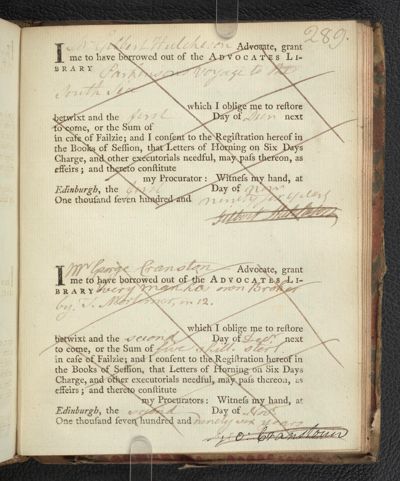 289.
I Mr Gilbert Hutcheson Advocate, grant
me to have borrowed out of the ADVOCATES LI-
BRARY Parkinsons Voyage to the
South Sea
which I oblige me to reſtore
betwixt and the first Day of Jan next
to come, or the Sum of
in caſe of Failzie; and I conſent to the Regiſtration hereof in
the Books of Seſſion, that Letters of Horning on Six Days
Charge, and other executorials needful, may paſs thereon, as
effeirs; and thereto conſtitute
my Procurator: Witneſs my hand, at
Edinburgh, the first Day of Novr
One thouſand ſeven hundred and ninety six years
Gilbert Hutcheson
I Mr George Cranston Advocate, grant
me to have borrowed out of the ADVOCATES LI-
BRARY Every man his own Broker
by T. Mortimer, in 12.
which I oblige me to reſtore
betwixt and the second Day of Decr next
to come, or the Sum of five shill: ster:
in caſe of Failzie; and I conſent to the Regiſtration hereof in
the Books of Seſſion, that Letters of Horning on Six Days
Charge, and other executorials needful, may paſs thereon, as
effeirs; and thereto conſtitute
my Procurators: Witneſs my hand, at
Edinburgh, the second Day of Novr
One thouſand ſeven hundred and ninety six years
Cranstoun